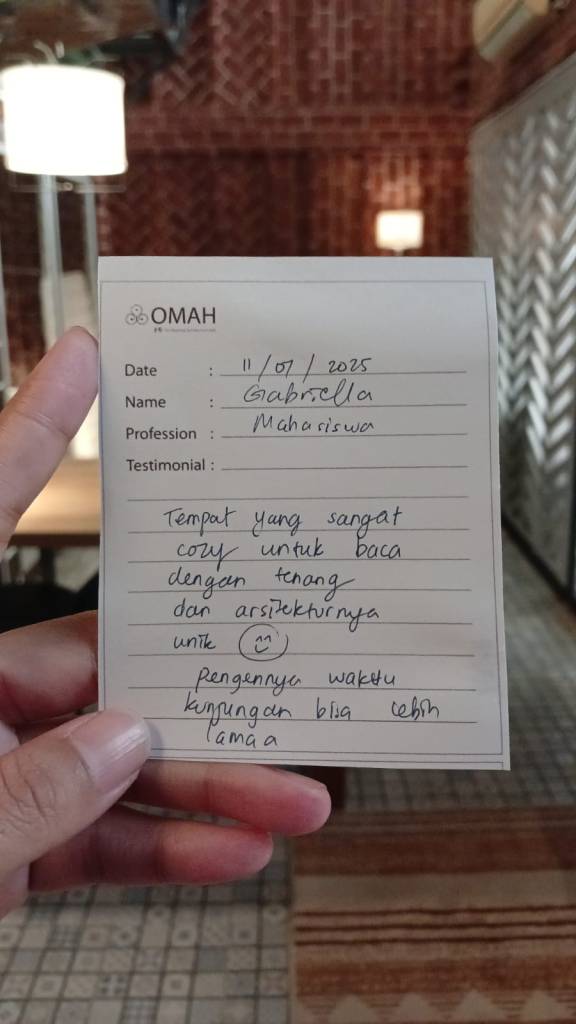 OMAH
Date : 11/07/2025
Name : Gabriella
Profession : Mahasiswa
Testimonial :
Tempat yang sangat
cozy untuk baca
dengan tenang
dan arsitekturnya
unik
pengennya waktu
kunjungan bisa lebih
lamaa